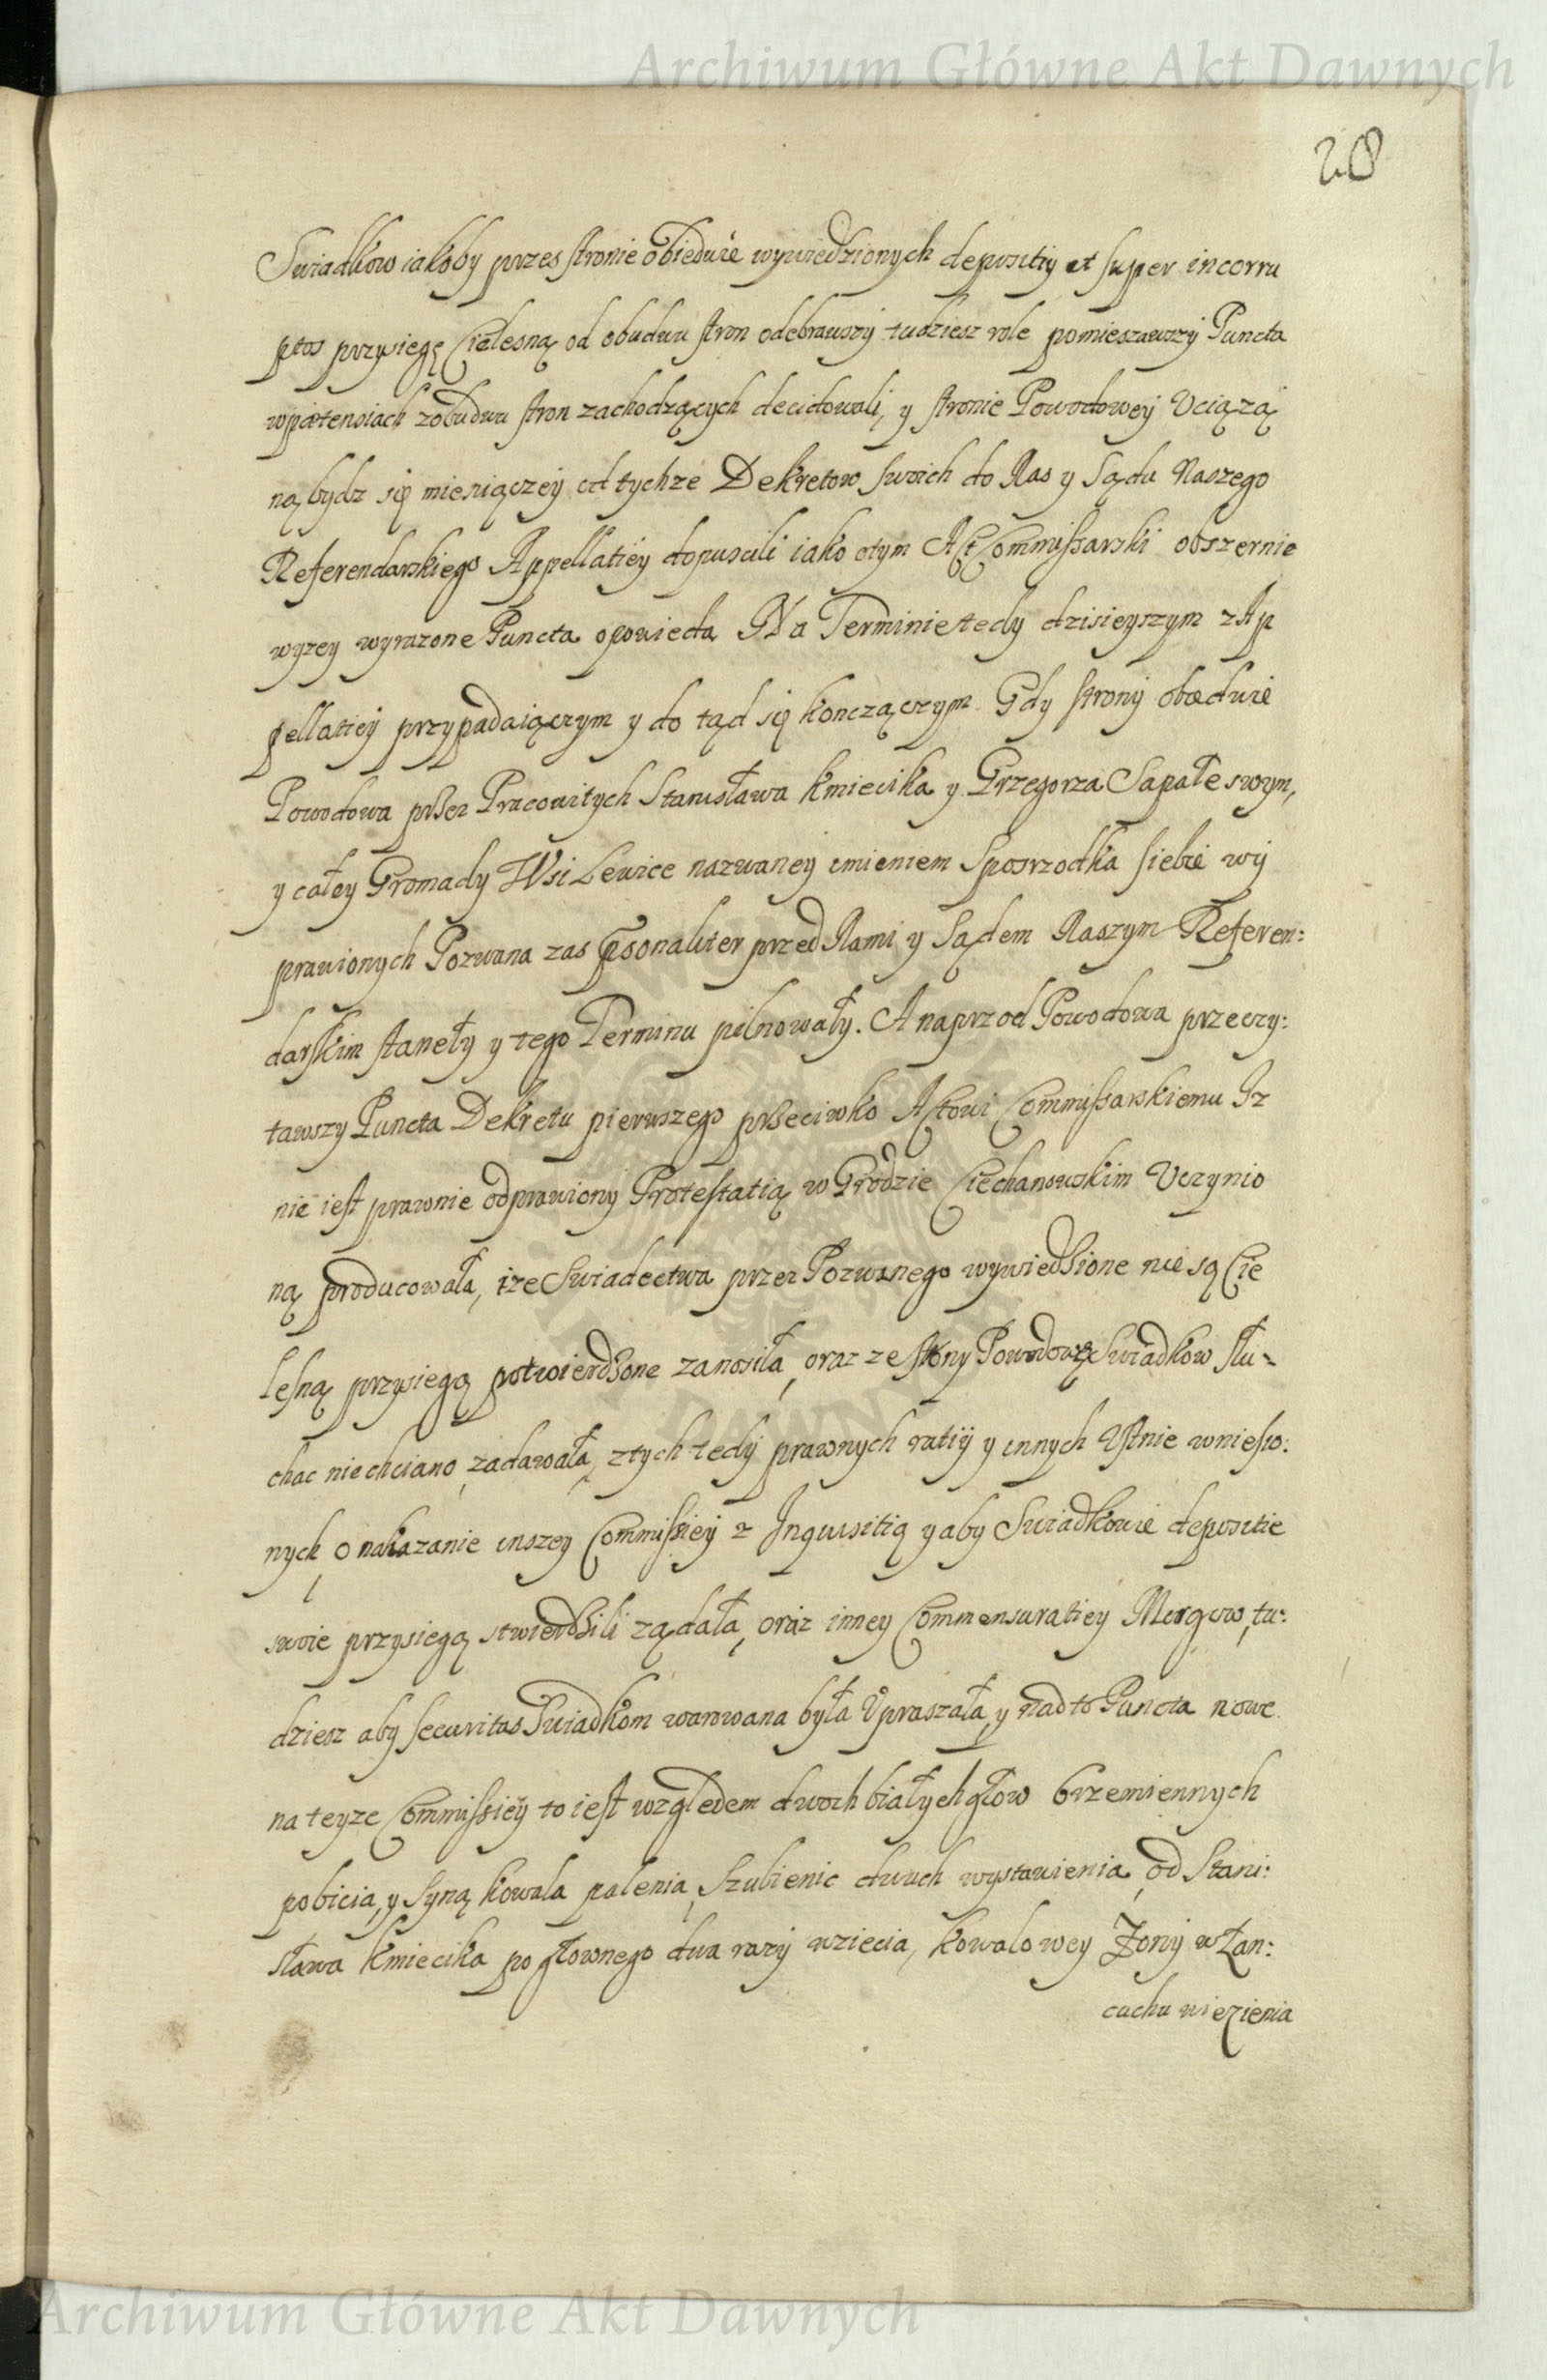 Archiwum Główne Akt Dawnych
28
Swiadkow iakoby przes stronie obiedwie wywiedzionych depositiy et super incorru
ptos przysięgę Cielesną od obudwu stron odebrawszy tudziesz role pomieszawszy Puncta
wprætensiach zobudwu stron zachodzących decidowali, y stronie Powodowey Uciążą
ną bydz się mieniączey od tychze Dekretow swich do Nas y Sądu Naszego
Referendarskiego Appellatiey dopuscili iako otym Act Commissarski obszernie
wyzey wyrazone Puncta opowieda Na Terminie tedy dzisieyszym z Ap
pellatiey przypadaiączym y do tąd się konczączym Gdy strony obædwie
Powodowa przez Pracowitych Stanisława Kmiecika y Grzegorza Sapałe swym,
y całey Gromady Wsi Lewice nazwaney imieniem Sposrzodka siebie wy
prawionych Pozwana zas Personaliter przed Nami y Sądem Naszym Referen:
darskim staneły y tego Terminu pilnowały. A naprzod Powodowa przeczy:
tawszy Puncta Dekretu pierwszego przeciwko Actowi Commissarskiemu Iz
nie iest prawnie odprawiony Protestatią w Grodzie Ciechanowskim Uczynio
ną producowała, ize Swiadectwa przez Pozwanego wywiedzione nie są Cie
lesną przysięgą potwierdzone zanosiła, oraz ze strony Powodowey Swiadkow słu-
chac niechciano, zadawała, ztych tedy prawnych ratiy y innych Ustnie wniesio:
nych, o nakazanie inszey Commissiey z Inquisitią y aby Swiadkowie depositie
swoie przysięgą stwierdzili ządała, oraz inney Commensuratiey Morgow, tu:
dziesz aby securitas Swiadkom warowana była Upraszała, y nad to Puncta nowe
na teyze Commissiey to iest względem dwoch białychgłow brzemiennych
pobicia, y Syna kowala palenia, Szubienic dwuch wystawienia, od Stani:
sława Kmiecika pogłownego dwa razy wziecia, kowalowey Zony w Łan:
cuchu wiezienia
Archiwum Główne Akt Dawnych